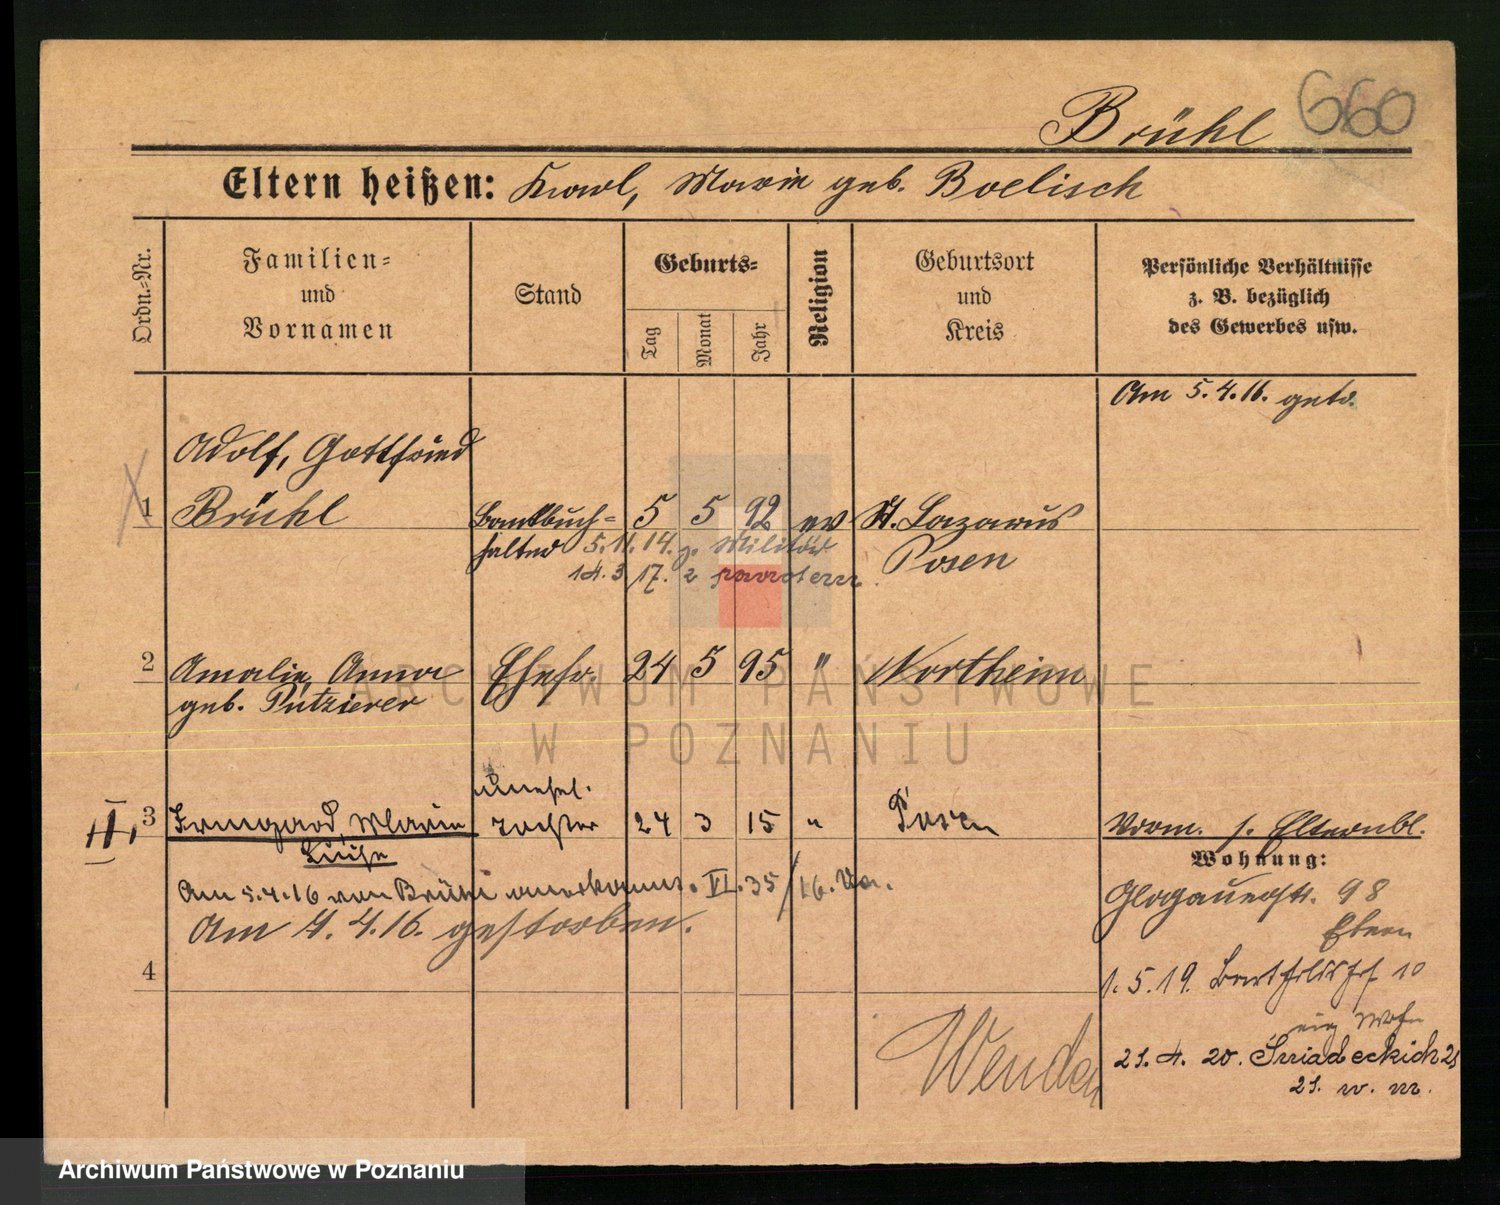 Brühl
660
Eltern heißen: Karl, Marie geb. Boelisch
Ordn.-Nr.
Familien-
und
Vornamen
Stand
Geburts-
Tag
Monat
Jahr
Religion
Geburtsort
und
Kreis
Persönliche Verhältnisse
z. B. bezüglich
des Gewerbes usw.
Am 5.4.16. getr.
Adolf, Gottfried
1 Brühl Bankbuch- 5 5 92 ev St. Lazarus
halter 5.11.14. z. Militär Posen
14.3.17. z
2 Amalie, Anna Ehefr. 24 5 95 " Northeim
geb. Pützierer
unehel.
II, 3 Irmgard, Marie Tochter 24 3 15 " Posen Vorm. s. Elternbl.
Luise Wohnung:
Am 5.4.16 von Brühl anerkannt. VI. 35/16. Glogauerstr. 98
Am 4.4.16. gestorben. Eltern
4 1.5.19. 10
eig Wohn
Wenden 21.4.20. Sniadeckich 21
21. w. m.
ARCHIWUM PAŃSTWOWE
W POZNANIU
Archiwum Państwowe w Poznaniu